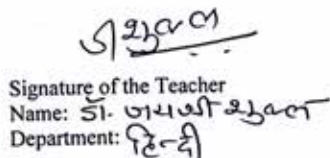 जशुक्ल
Signature of the Teacher
Name: डॉ. जयश्री शुक्ल
Department: हिन्दी